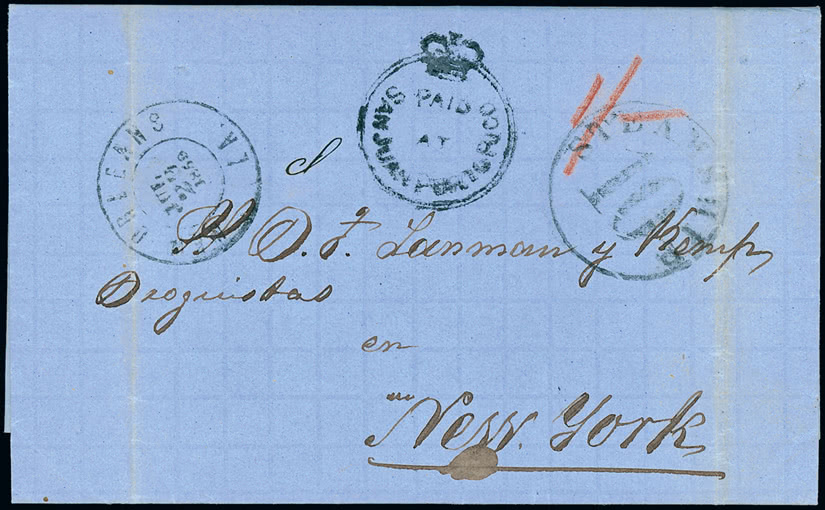 PAID
AT
SAN JUAN PUERTO RICO
ORLEANS LA.
JUL
1/-
STEAMSHIP
10
D. F. Lanman y Kemp
Droguistas
en
New York